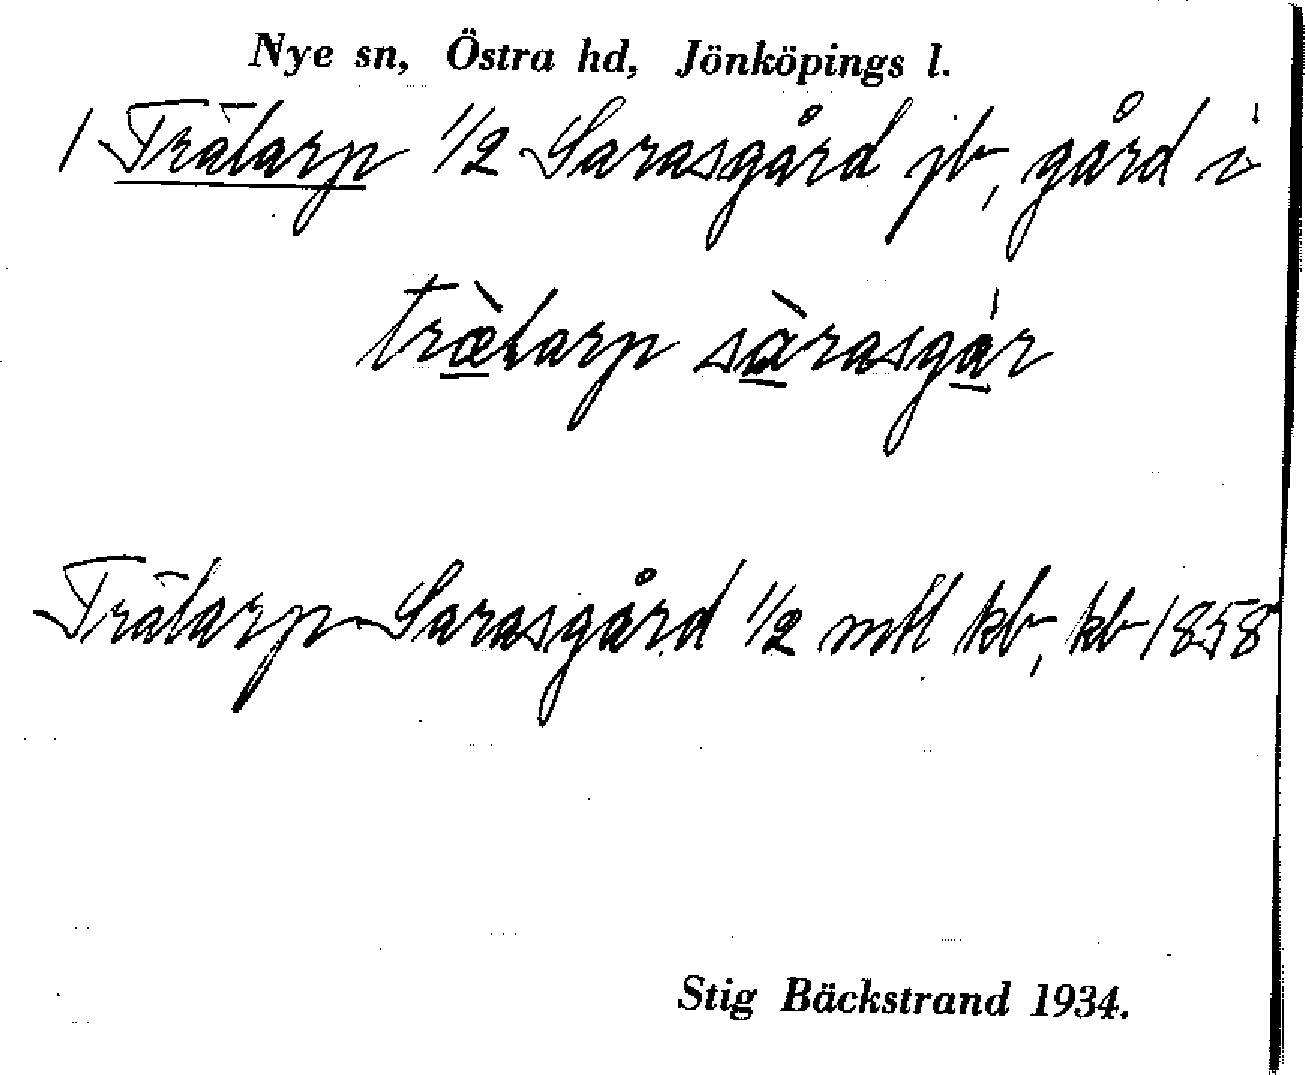 Nye sn, Östra hd, Jönköpings l.
1 Trälarp 1/2 Sarasgård jb, gård i
trælarp sàrasgár
Trälarp Sarasgård 1/2 mtl kb, kb 1858
Stig Bäckstrand 1934.